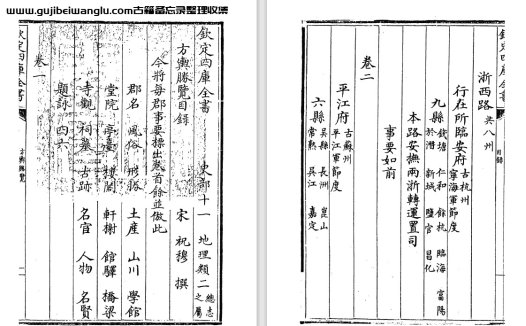 www.gujibeiwanglu.com古籍备忘录整理收集
欽定四庫全書 史部十一 地理類二 總志之屬
方輿勝覽目錄
宋 祝穆 撰
今將每郡事要標出卷首餘並倣此
郡名 風俗 形勝 土產 山川 學館
堂院 亭臺 樓閣 軒榭 館驛 橋梁
寺觀 祠墓 古跡 名官 人物 名賢
題詠 四六
卷一
欽定四庫全書 方輿勝覽
浙西路 共八州
行在所臨安府 古杭州 寧海軍節度
九縣 錢塘 仁和 餘杭 臨海 富陽 於潛 新城 鹽官 昌化
本路安撫兩浙轉運置司
事要如前
卷二
平江府 古蘇州 平江軍節度
六縣 吳縣 長洲 崑山 常熟 吳江 嘉定
欽定四庫全書 目錄